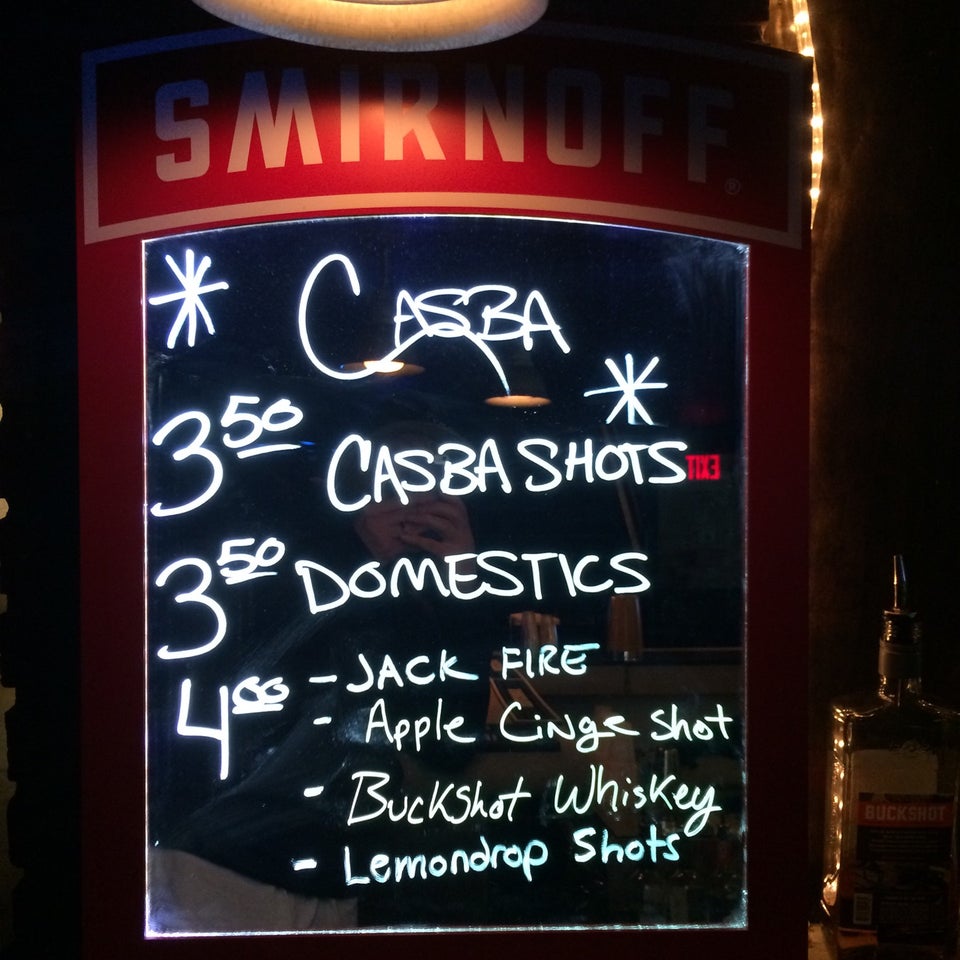 SMIRNOFF®
* CASBA *
3.50 CASBA SHOTS
EXIT
3.50 DOMESTICS
4.00 - JACK FIRE
- Apple Cinge Shot
- Buckshot Whiskey
- Lemondrop Shots
BUCKSHOT